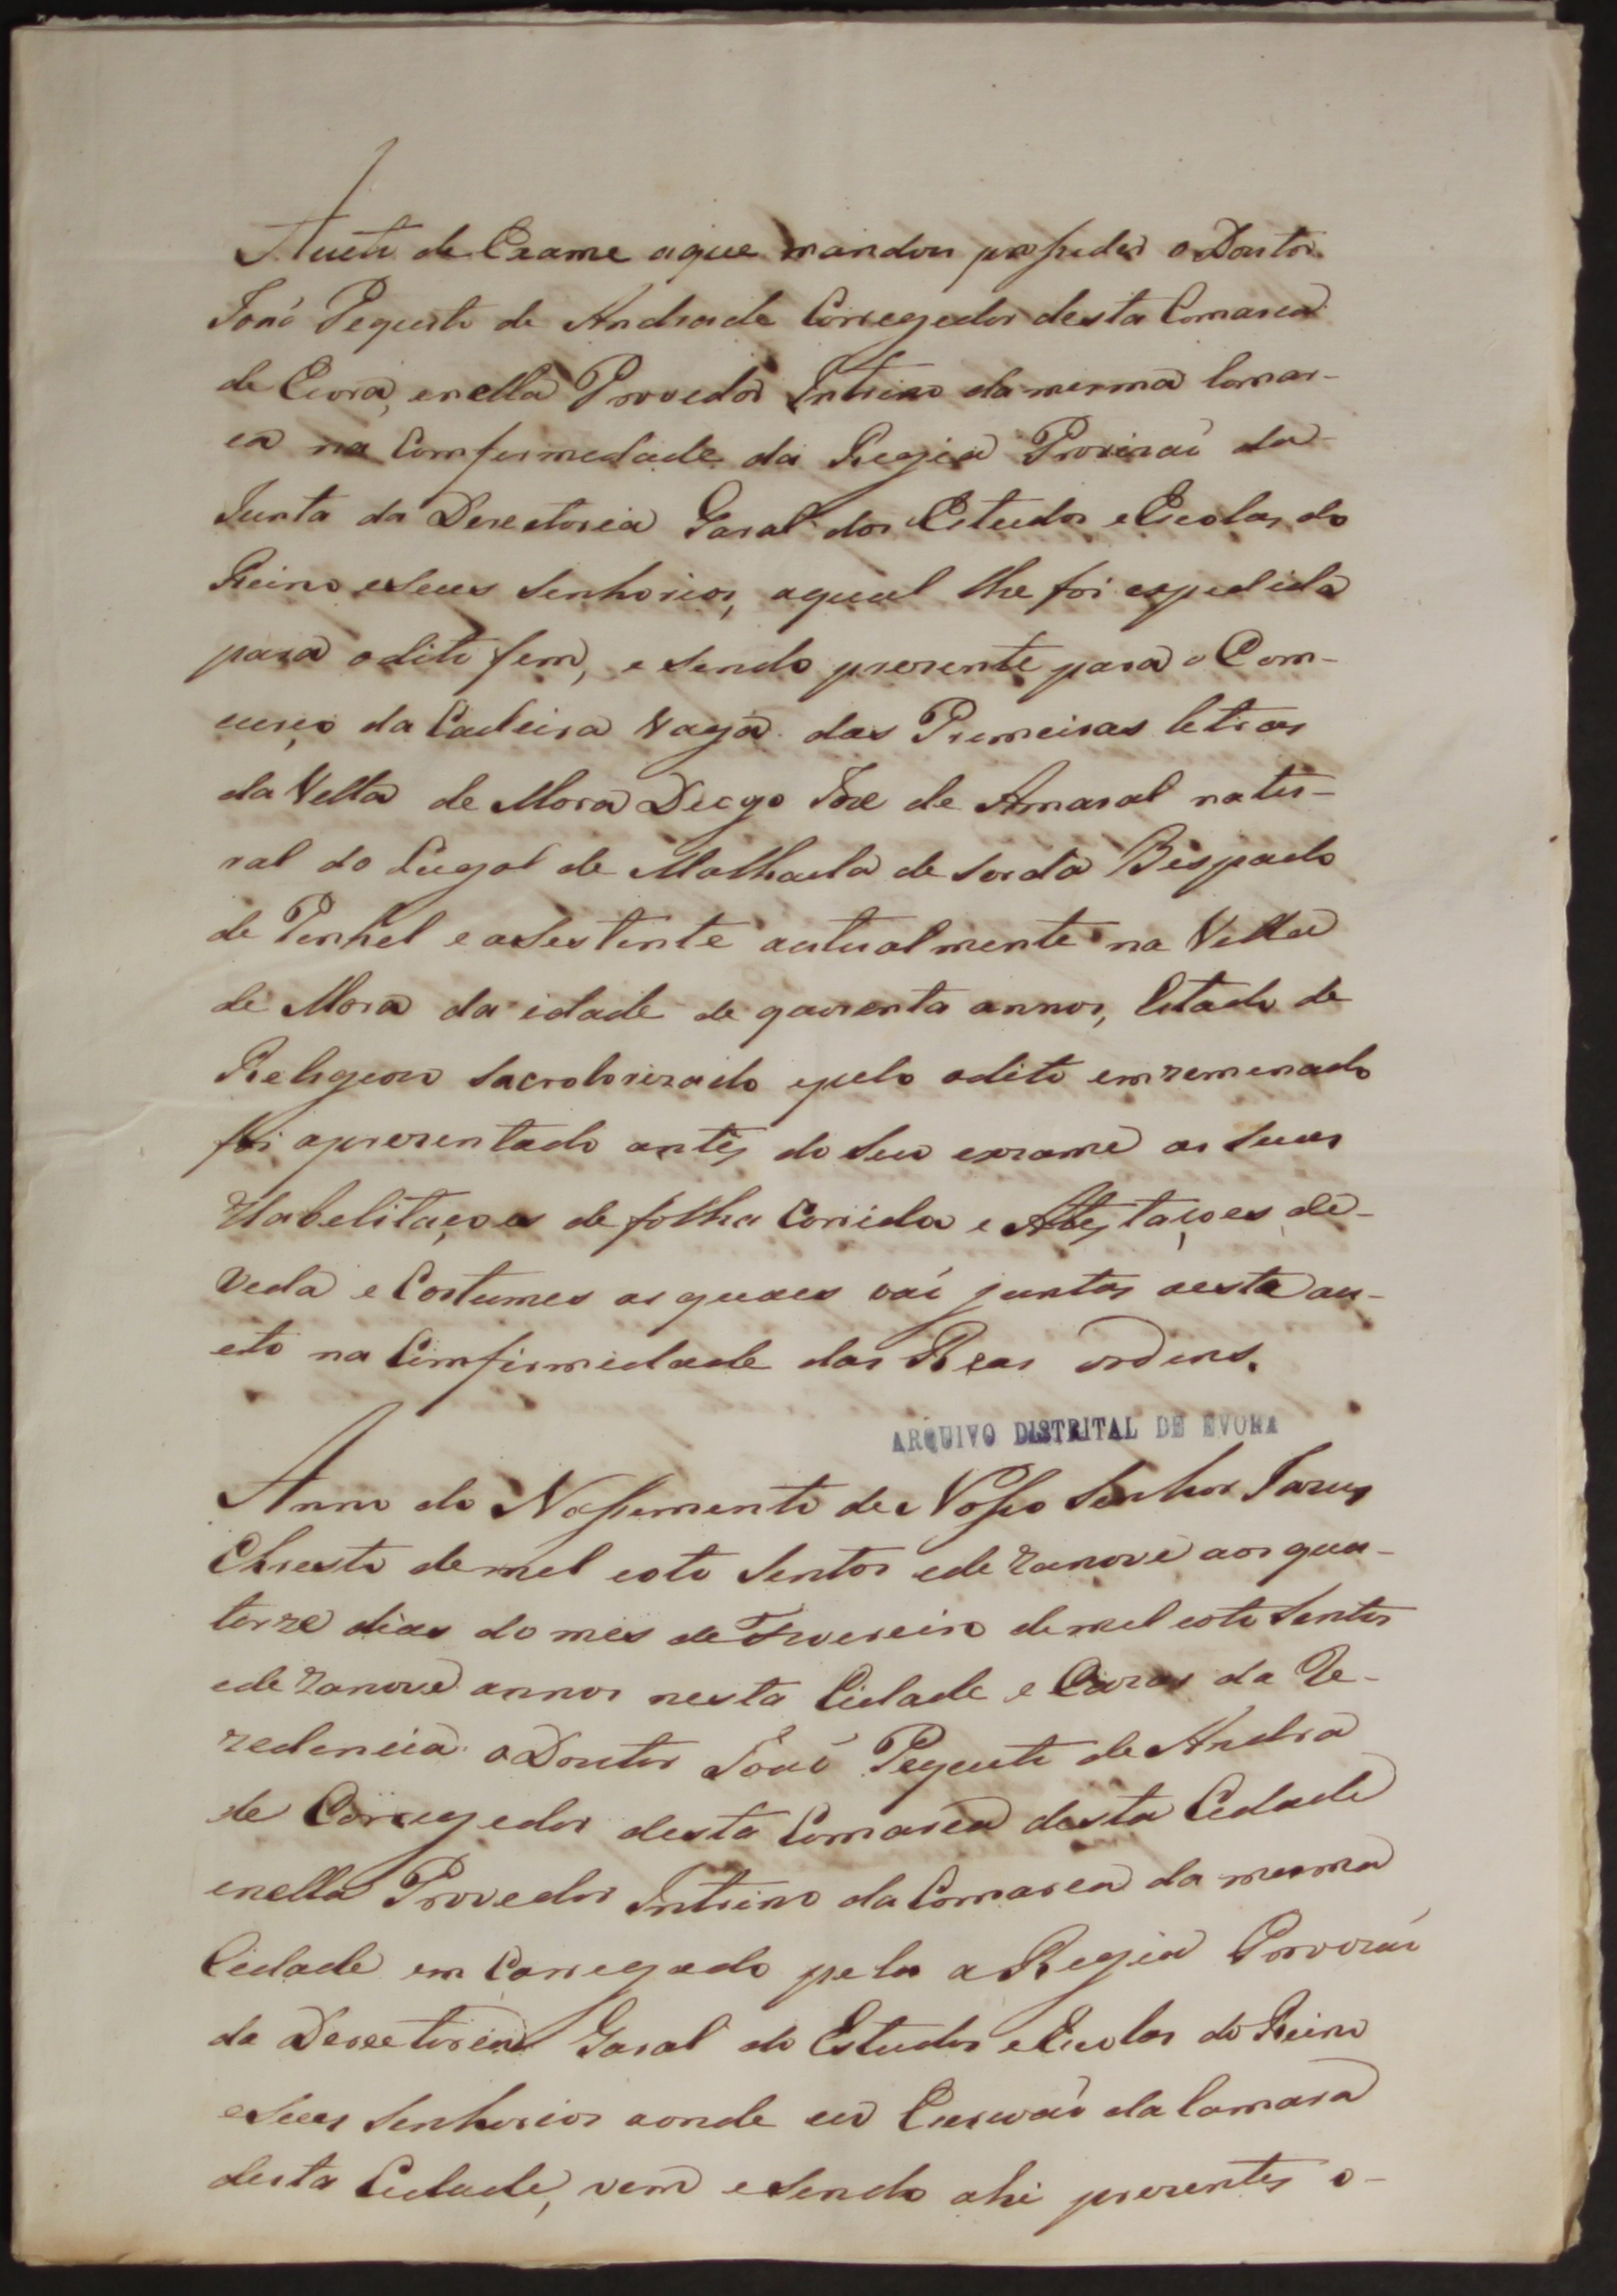 Aueto de Exame aque mandou prosseder o Doutor
João Peguito de Andrade Corregedor desta Comarca
de Evora, enella Provedor Intrino da mesma Comar-
ca na Comformedade da Regia Provizaõ da
Junta da Derectoria Garal dos Estudos e Escolas do
Reino eseus Senhorios, aqual lhe foi expedida
para odito fem, e sendo prezente para o Com-
curço da Cadeira Vaga das Premeiras letras
da Vella de Mora Diogo Joze de Amaral natu-
ral do Lugal de Malhada de Sorda Bispado
de Penhel e asestente autualmente na Vella
de Mora da idade de quorenta annos, Estado de
Religiozo Sacrolorizado epelo odito emzemenado
foi aprezentado antes do Seu exzame as Suas
Habelitaçoes de folha Corrida e Atestaçoes de-
Veda e Costumes as quaes vaõ juntas aesta au-
eto na Comfirmidade das Reas ordens.
ARQUIVO DISTRITAL DE EVORA
Anno do Nassemento de Nosso Senhor Jazus
Christo demel eoto Sentos edezanove aos qua-
torze dias do mes de Fevereiro demel eoto Sentos
edezanove annos nesta Cidade e Cazas da Re-
zedencia o Doutor Joaõ Peguito de Andra
de Corregedor desta Comarca desta Cidade
enella Provedor Intrino da Comarca da mesma
Cidade em Carregado pela a Regia Provizaõ
da Derectoria Garal do Estudos e Escolas do Reino
eseus Senhorios aonde eu Escrivaõ da Camara
desta Cidade, vem e sendo ahi prezentes o-